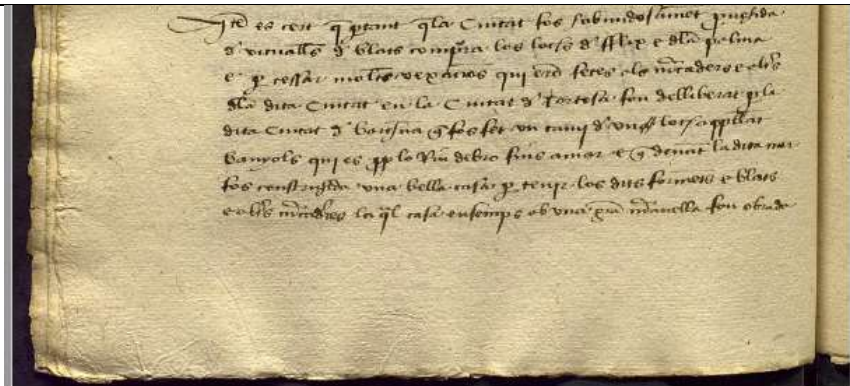 Ite es cert q ptant qla Ciutat fos habundosamet puehida
d vitualls d blats compra los lochs d fflix e dla palma
e p cessar moltes vexacios qui eren fetes als mcaders e alts
dla dita Ciutat en la Ciutat d Tortosa fou delliberat p la
dita Ciutat d barchna q fos fet un cami d un loch appellat
banyols qui es pp lo Riu debro fins a mar e q denant la dita mar
fos construyida una bella casa p tenir los dits forments e blats
e alts mcaderies la ql casa ensemps ab una gra maravella fou obrada